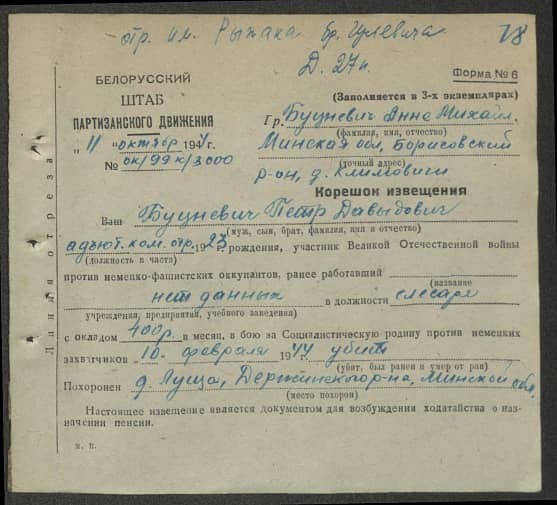 отр. им. Рыжака бр. Гулевича
78
Д. 27 н.
БЕЛОРУССКИЙ
ШТАБ
ПАРТИЗАНСКОГО ДВИЖЕНИЯ
„ 11 " октября 1944 г.
№ ок/99к/3000
Форма № 6
(Заполняется в 3-х экземплярах)
Гр. Буцневич Анне Михайл.
(фамилия, имя, отчество)
Минская обл, Борисовский
(точный адрес)
р-он, д. Климовичи
Корешок извещения
Ваш Буцневич Петр Давыдович
(муж, сын, брат, фамилия, имя и отчество)
адъют. ком. отр. 1923 рождения, участник Великой Отечественной войны
(должность в части)
против немецко-фашистских оккупантов, ранее работавший
(название
нет данных в должности слесаря
учреждения, предприятия, учебного заведения)
с окладом 400 р. в месяц, в бою за Социалистическую родину против немецких
захватчиков 10 февраля 1944 убит
(убит, был ранен и умер от ран)
Похоронен д. Луща, Держинского р-на, Минской обл.
(место похорон)
Настоящее извещение является документом для возбуждения ходатайства о на-
значении пенсии.
м. п.
Линия отреза